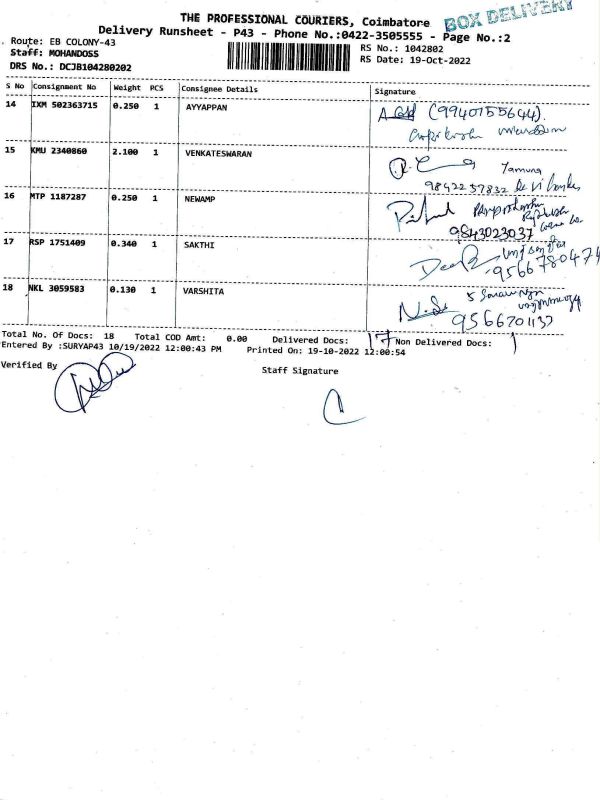 THE PROFESSIONAL COURIERS, Coimbatore
BOX DELIVERY
Delivery Runsheet - P43 - Phone No.:0422-3505555 - Page No.:2
Route: EB COLONY-43
RS No.: 1042802
Staff: MOHANDOSS
RS Date: 19-Oct-2022
DRS No.: DCJB104280202
S No Consignment No Weight PCS Consignee Details Signature
14 IXM 502363715 0.250 1 AYYAPPAN (9940755644).
15 KMU 2340860 2.100 1 VENKATESWARAN Yamuna
9842237832
16 MTP 1187287 0.250 1 NEWAMP
9843023037
17 RSP 1751409 0.340 1 SAKTHI
9566780474
18 NKL 3059583 0.130 1 VARSHITA
9566701137
Total No. Of Docs: 18 Total COD Amt: 0.00 Delivered Docs: 17 Non Delivered Docs: 1
Entered By :SURYAP43 10/19/2022 12:00:43 PM Printed On: 19-10-2022 12:00:54
Verified By
Staff Signature